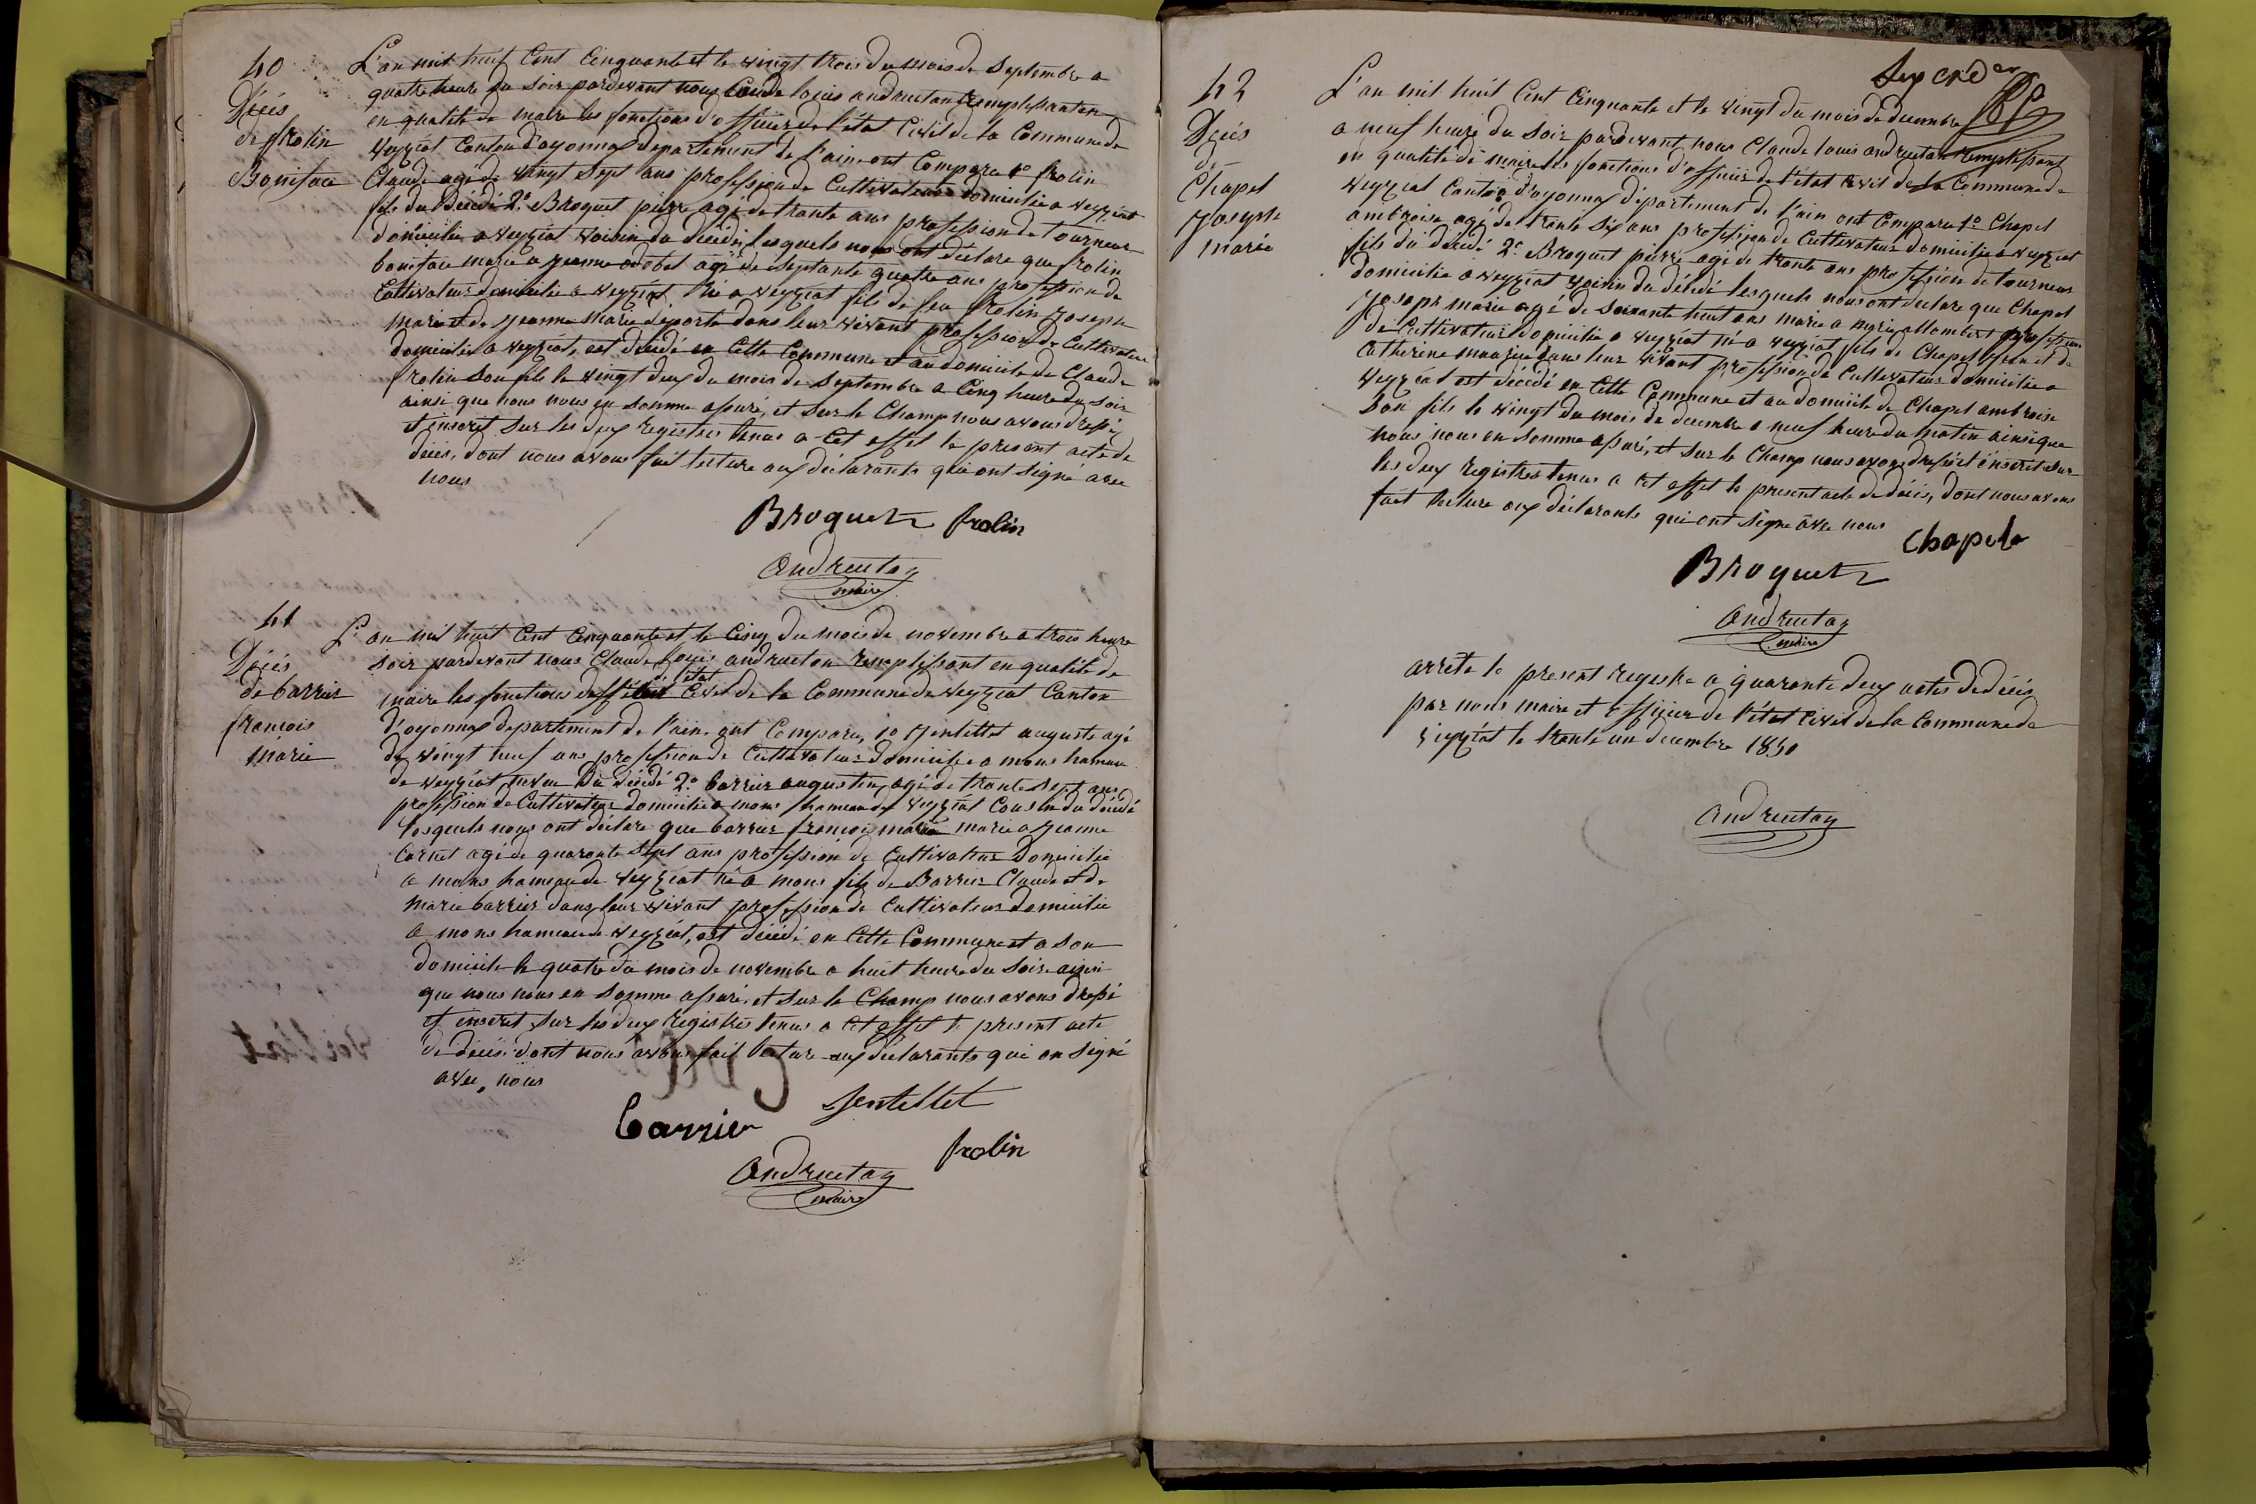 40
Décès
de frolin
Boniface
L'an mil huit Cent Cinquante et le vingt trois du mois de Septembre a
quatre heure du soir pardevant nous Claude louis andruetan Remplissant en
en qualité de maire les fonctions d'officier de l'état Civil de la Commune de
veyziat Canton d'oyonnax departement de l'ain ont Comparu 1º frolin
Claude agé de vingt sept ans profession de Cultivateur domicilie a veyziat
fils du décédé 2º Broquet pierre agé de trante ans profession de tourneur
domicilie a veyziat voisin du décédé, lesquels nous ont déclare que frolin
boniface marie a jeanne agé de septante quatre ans profession de
Cultivateur domicilie a veyziat, né a veyziat fils de feu frolin joseph
marie et de jeanne Marie deporte dans leur vivant profession de Cultivateur
domicilies a veyziat, est décédé en Cette Commune et au domicile de Claude
frolin Son fils le vingt deux du mois de Septembre a Cinq heure du soir
ainsi que nous nous en somme assuré, et sur le Champ nous avons dressé
et inscret sur les deux registres tenus a Cet effet le present acte de
décès, dont nous avons fait lecture aux déclarants qui ont signé avec
nous
Broquet frolin
andruetan
maire
41
Décès
de barrier
francois
Marie
L'an mil huit Cent Cinquante et le Cinq du mois de novembre a trois heure
soir pardevant nous Claude louis andruetan Remplissant en qualité de
état
maire les fonctions Civil de la Commune de veyziat Canton
d'oyonnax departement de l'ain ont Comparu, 1º jentellet auguste agé
de vingt neuf ans profession de Cultivateur domicilie a mons hameau
de veyziat neveu du décédé 2º barrier augustin agé de trante sept ans
profession de Cultivateur domicilie a mons hameau de veyziat Cousin du décédé
lesquels nous ont déclare que barrier francois marie marie a jeanne
Carnet agé de quarante sept ans profession de Cultivateur Domicilie
a mons hameau de veyziat né a mons fils de Barrier Claude et de
Marie barrier dans leur vivant profession de Cultivateur domicilie
a mons hameau de veyziat, est décédé en Cette Commune et a son
domicile le quatre du mois de novembre a huit heure du soir ainsi
que nous nous en somme assuré, et sur le Champ nous avons dressé
et inscret sur les deux registres tenus a Cet effet le present acte
de décès dont nous avons fait lecture aux déclarants qui on signé
avec nous
barrier jentellet
frolin
andruetan
maire
42
Décès
de
Chapel
joseph
marie
L'an mil huit Cent Cinquante et le vingt du mois de decembre
a neuf heure du soir pardevant nous Claude louis andruetan remplissant
en qualité de maire les fonctions d'officier de l'état Civil de la Commune de
veyziat Canton d'oyonnax département de l'ain ont Comparu 1º Chapel
ambroise agé de trante six ans profession de Cultivateur domicilie a veyziat
fils du décédé 2º Broquet pierre agé de trante ans profession de tourneur
domicilie a veyziat voisin du décédé lesquels nous ont declare que Chapel
joseph marie agé de soixante huit ans marie a marie allombert profession
de Cultivateur domicilie a veyziat né a veyziat fils de Chapel jean et de
Catherine dans leur vivant profession de Cultivateur domicilie a
veyziat est décédé en Cette Commune et au domicile de Chapel ambroise
son fils le vingt du mois de decembre a neuf heure du matin ainsi que
nous nous en somme assuré, et sur le Champ nous avons dressé et inscret sur
les deux registres tenus a Cet effet le present acte de décès, dont nous avons
fait lecture aux déclarants qui ont signe avec nous
Chapel
Broquet
andruetan
maire
arrêté le present registre a quarante deux actes de décès
par nous maire et officier de l'état civil de la Commune de
veyziat le trante un decembre 1850
andruetan